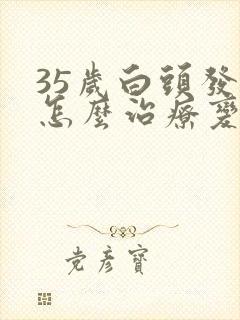 35歲白頭發
怎麼治療變
党彥寶